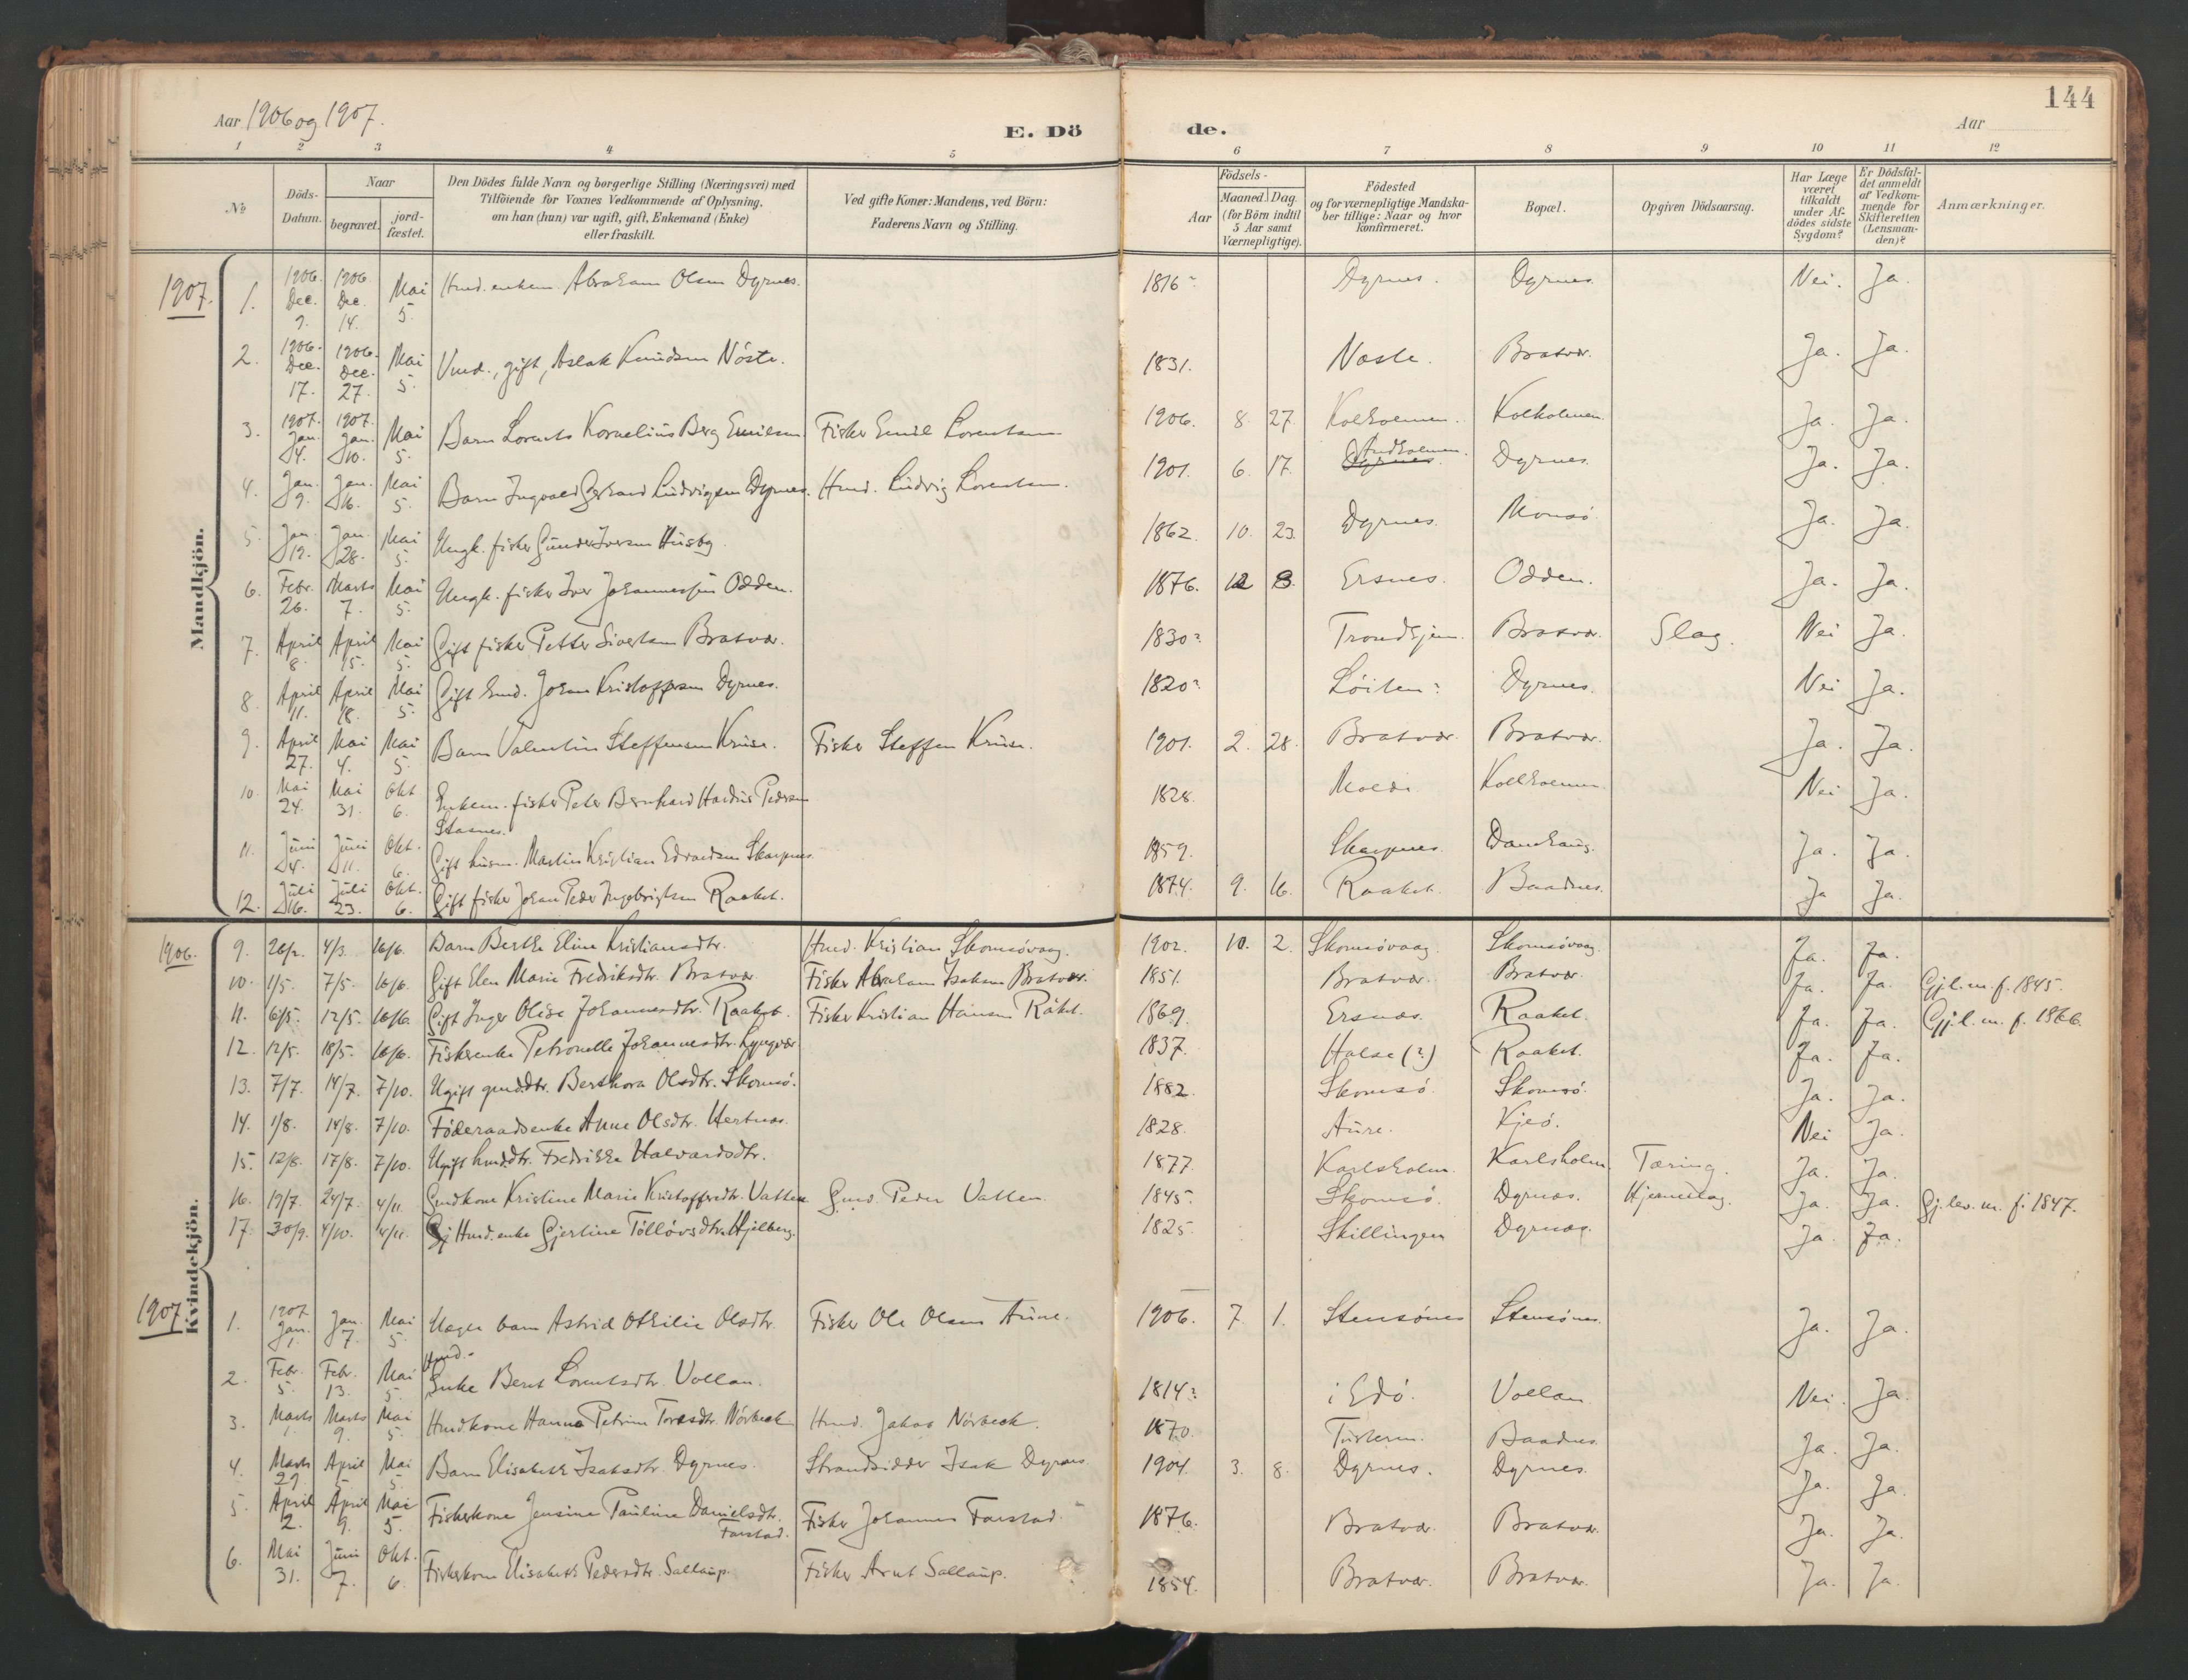 144
Aar 1906 og 1907.
E. Dö de.
Aar
1 2 3 4 5 6 7 8 9 10 11 12
№
Döds-Datum.
Naar
begravet.
jord-fæstet.
Den Dödes fulde Navn og borgerlige Stilling (Næringsvei) med
Tilföiende for Voxnes Vedkommende af Oplysning,
om han (hun) var ugift, gift, Enkemand (Enke)
eller fraskilt.
Ved gifte Koner: Mandens, ved Börn:
Faderens Navn og Stilling.
Födsels-
Aar
Maaned. Dag.
(for Börn indtil
5 Aar samt
Værnepligtige).
Födested
og for værnepligtige Mandska-
ber tillige: Naar og hvor
konfirmeret.
Bopæl.
Opgiven Dödsaarsag.
Har Læge
været
tilkaldt
under Af-
dödes sidste
Sygdom?
Er Dödsfal-
det anmeldt
af Vedkom-
mende for
Skifteretten
(Lensman-
den)?
Anmærkninger.
Mandkjön.
1907.
1. 1906. Dec. 9. 1906 Dec. 14. Mai 5. Hmd. enkem. Abraham Olsen Dyrnes. 1816 Dyrnes. Dyrnes. Nei. Ja.
2. 1906. Dec. 17. 1906. Dec. 27. Mai 5. Vmd., gift, Aslak Knudsen Nöste. 1831. Næste. Bratvær. Ja. Ja.
3. 1907. Jan. 4. 1907. Jan. 10. Mai 5. Barn Lorents Kornelius Berg Emilsen Fisker Emil Lorentsen 1906. 8. 27. Kolholmen. Kolholmen. Ja. Ja.
4. Jan. 9. Jan. 16. Mai 5. Barn Ingvald Gerhard Ludvigsen Dyrnes. Hmd. Ludvig Lorentsen. 1901. 6. 17. Dyrnes. Dyrnes. Ja. Ja.
5. Jan. 19. Jan. 28. Mai 5. Ungk. fisker Gunder Iversen Husby 1862. 10. 23. Dyrnes. Monsö. Ja. Ja.
6. Febr. 26. Marts 7. Mai 5. Ungk. fisker Iver Johannessen Odden. 1876. 12 Ersnes. Odden. Ja. Ja.
7. April 8. April 15. Mai 5. Gift fisker Petter Sivertsen Bratvær. 1830? Trondhjem. Bratvær. Slag. Nei Ja.
8. April 11. April 18. Mai 5. Gift hmd. Johan Kristoffersen Dyrnes. 1820? Löiten? Dyrnes. Nei Ja.
9. April 27. Mai 4. Mai 5. Barn Valentin Steffensen Kruse. Fisker Steffen Kruse. 1901. 2. 28. Bratvær. Bratvær. Ja. Ja.
10. Mai 24. Mai 31. Okt 6. Enkem. fisker Peter Bernhard Pedersen
Stavnes. 1828. Molde Kolholmen Nei Ja.
11. Juni 4. Juni 11. Okt. 6. Gift husm. Martin Kristian Edvardsen Skarpnes. 1859. Skarpnes. Ja. Ja.
12. Juli 16. Juli 23. Okt. 6. Gift fisker Johan Peder Ingebrigtsen Raaket. 1874. 9. 16. Raaket. Baadnes. Ja Ja.
Kvindekjön.
1906.
9. 26/2. 4/3. 16/6. Barn Berthe Eline Kristiansdtr. Hmd. Kristian Skomsövaag. 1902. 10. 2. Skomsövaag. Skomsövaag. Ja. Ja.
10. 1/5. 7/5. 16/6. Gift Elen Marie Fredriksdtr. Bratvær. Fisker Abraham Isaksen Bratvær. 1851. Bratvær. Bratvær. Ja. Ja. Gj.l.m.f. 1845.
11. 6/5. 12/5. 16/6. Gift Inger Olise Johannesdtr. Raaket. Fisker Kristian Hansen Råket. 1869. Ersnes. Raaket. Ja. Ja. Gj.l.m.f. 1866.
12. 12/5. 18/5. 16/6. Fiskerenke Petronelle Johannesdtr. Lyngvær. 1837. Halse (?) Raaket. Ja. Ja.
13. 7/7. 14/7. 7/10. Ugift gmd.dtr. Berthora Olsdtr. Skomsö. 1882. Skomsö. Skomsö. Ja. Ja.
14. 1/8. 14/8. 7/10. Föderaadsenke Anne Olsdtr. Hertnes. 1828. Aure. Kjeö. Nei Ja.
15. 12/8. 17/8. 7/10. Ugift hmd.dtr. Fredrikke Halvardsdtr. 1877. Karlsholm. Karlsholm. Tæring. Ja. Ja.
16. 19/7. 24/7. 4/11. Gmdkone Kristine Marie Kristoffersdtr. Vatten Gmd. Peder Vatten. 1845. Skomsö. Dyrnes. Hjerneslag. Ja. Ja. Gj. lev. m. f. 1847.
17. 30/9. 4/10. 4/11. Hmd. enke Gjertine Tollövsdtr. Hjelberg. 1825. Skillingen Dyrnes. Ja. Ja.
1907.
1. 1907 Jan. 1. Jan. 7. Mai 5. barn Astrid Othilie Olsdtr. Fisker Ole Olsen Aune. 1906. 7. 1. Stensönes Stensönes. Ja. Ja.
2. Febr. 5. Febr. 13. Mai 5. Hmd. Enke Beret Lorentsdtr. Vollan. 1814? i Edö. Vollan Nei. Ja.
3. Marts 1. Marts 9. Mai 5. Hmdkone Hanna Petrine Toresdtr. Nörbech Hmd. Jakob Nörbech. 1870. Tusteren. Baadnes. Ja. Ja.
4. Marts 29. April 5. Mai 5. Barn Elisabeth Isaksdtr. Dyrnes. Strandsidder Isak Dyrnes 1904. 3. 8. Dyrnes. Dyrnes. Ja. Ja.
5. April 2. April 9. Mai 5. Fiskerkone Jensine Pauline Danielsdtr.
Farstad. Fisker Johannes Farstad. 1876. Bratvær. Bratvær. Ja. Ja.
6. Mai 31. Juni 7. Okt. 6. Fiskerkone Elisabeth Pedersdtr. Sallaup. Fisker Arnt Sallaup. 1854. Bratvær. Bratvær. Ja. Ja.